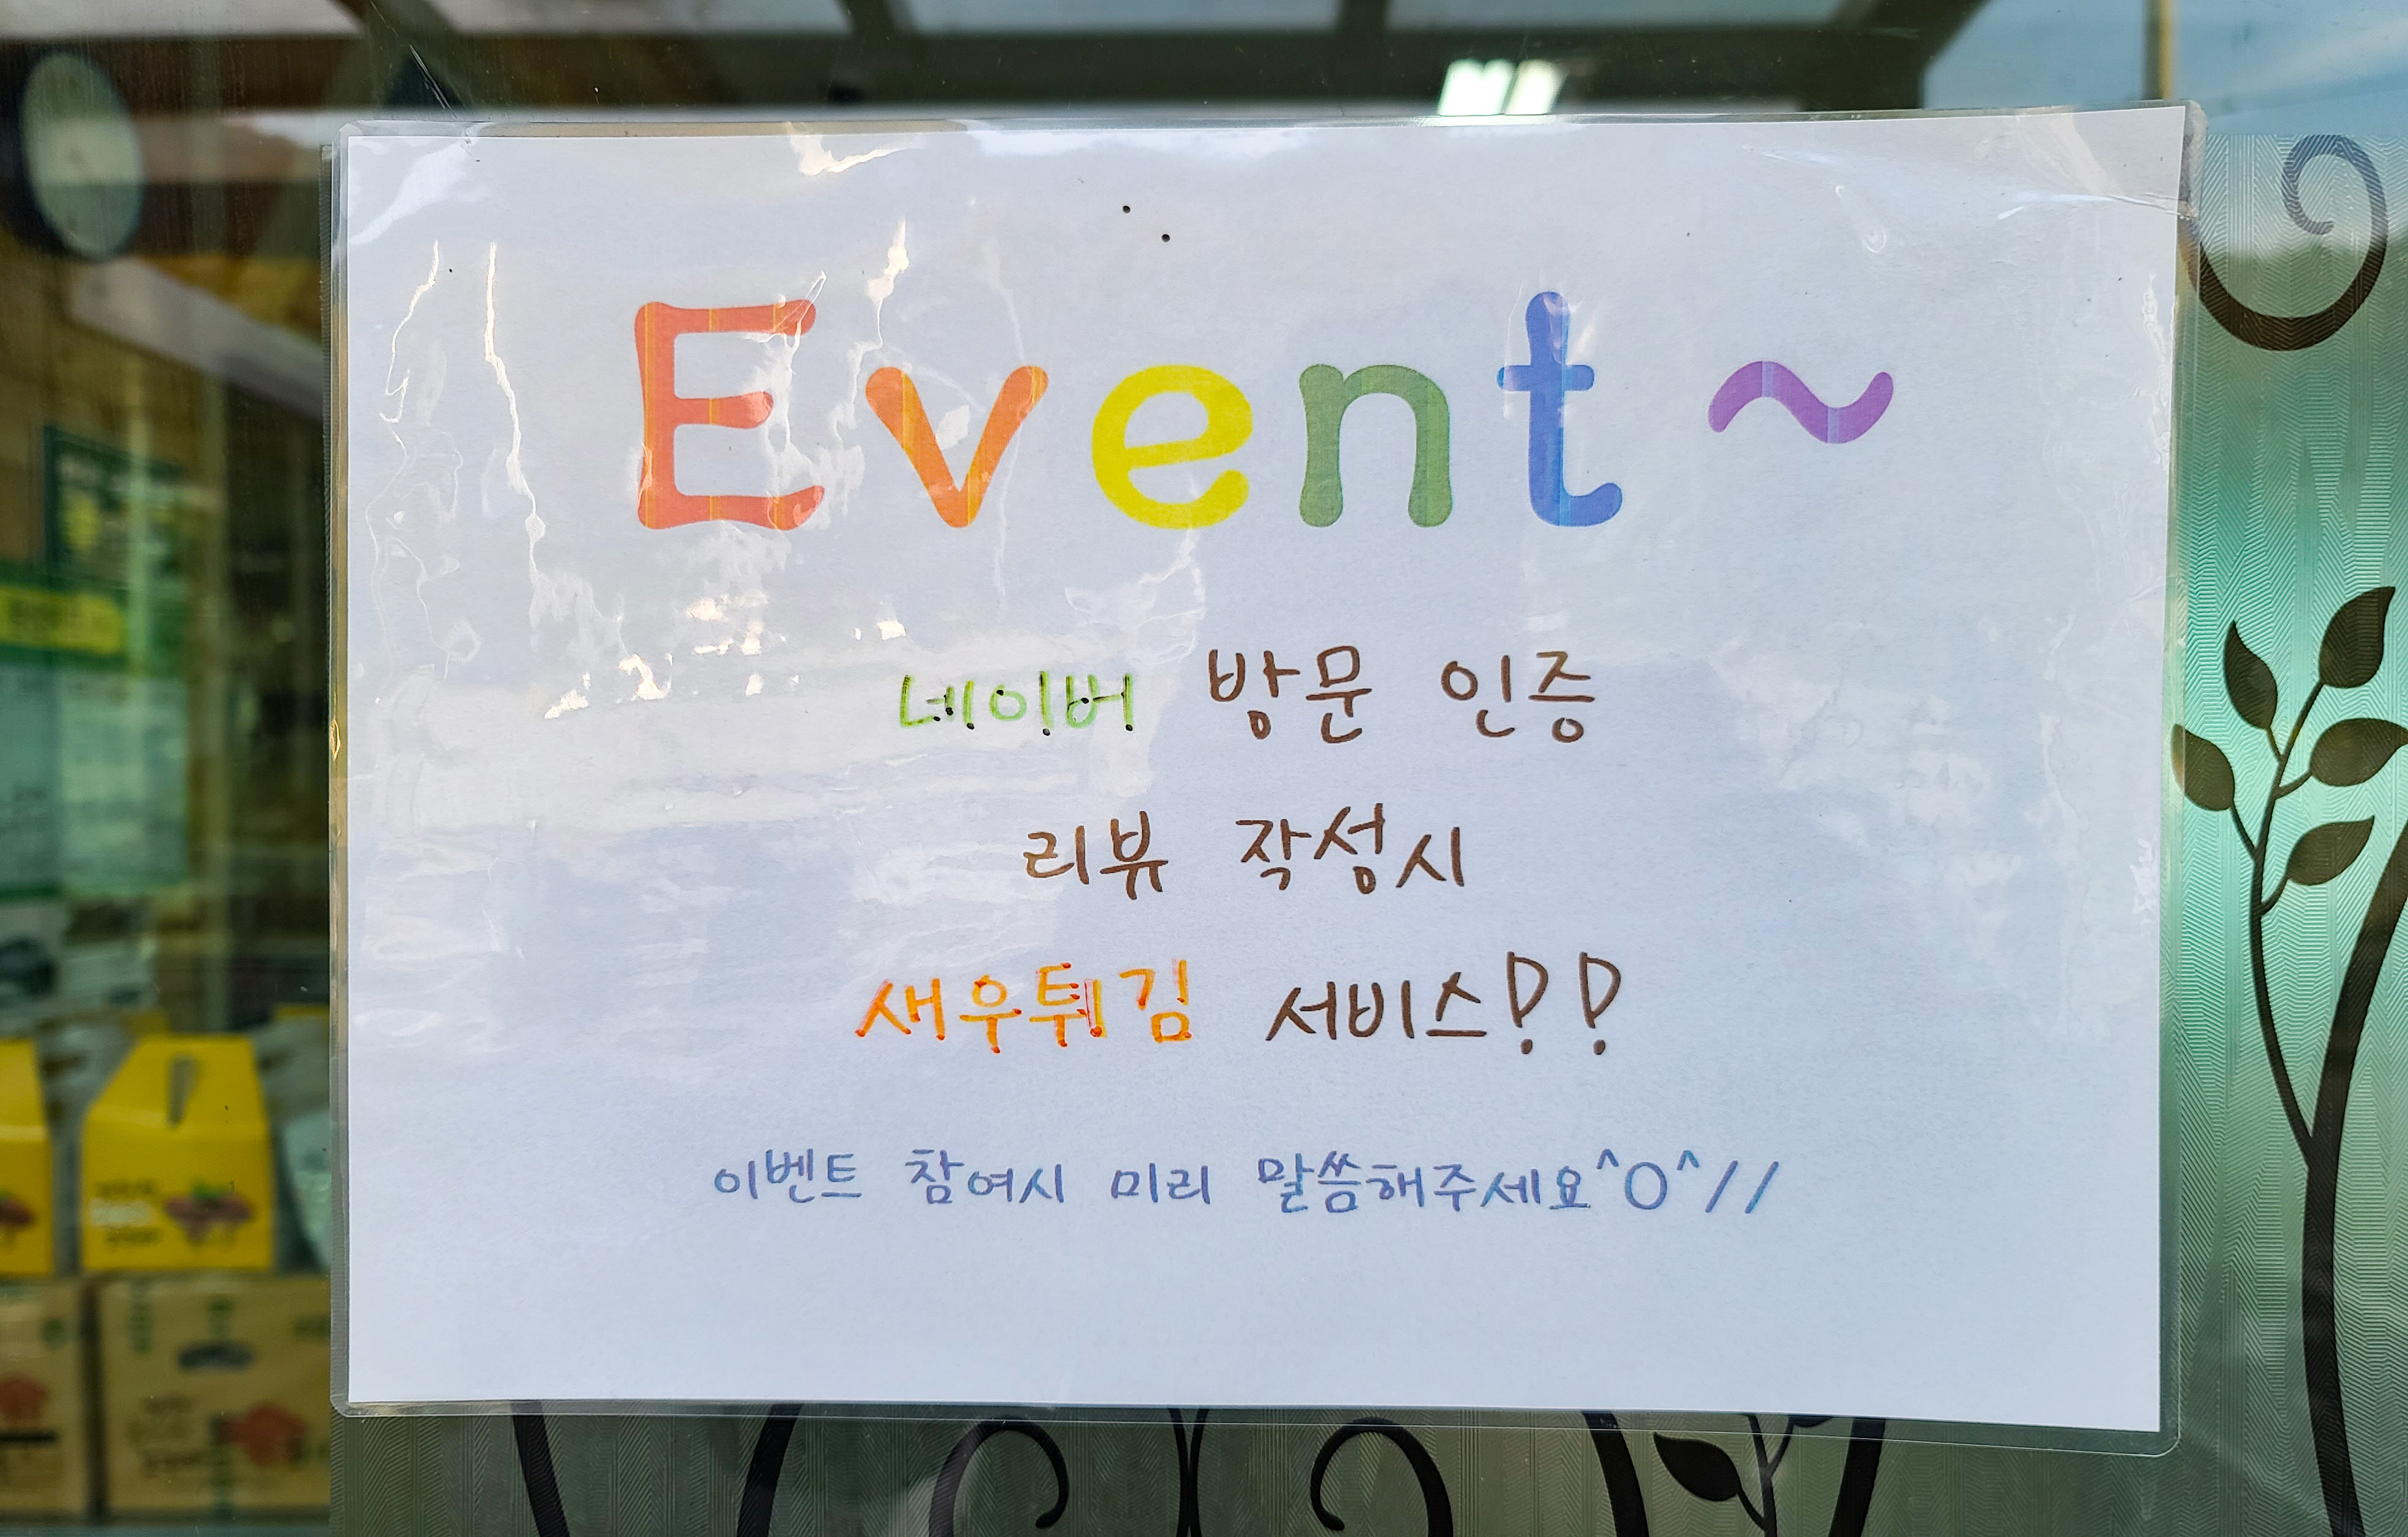 Event ~
네이버 방문 인증
리뷰 작성시
새우튀김 서비스!!
이벤트 참여시 미리 말씀해주세요^O^//